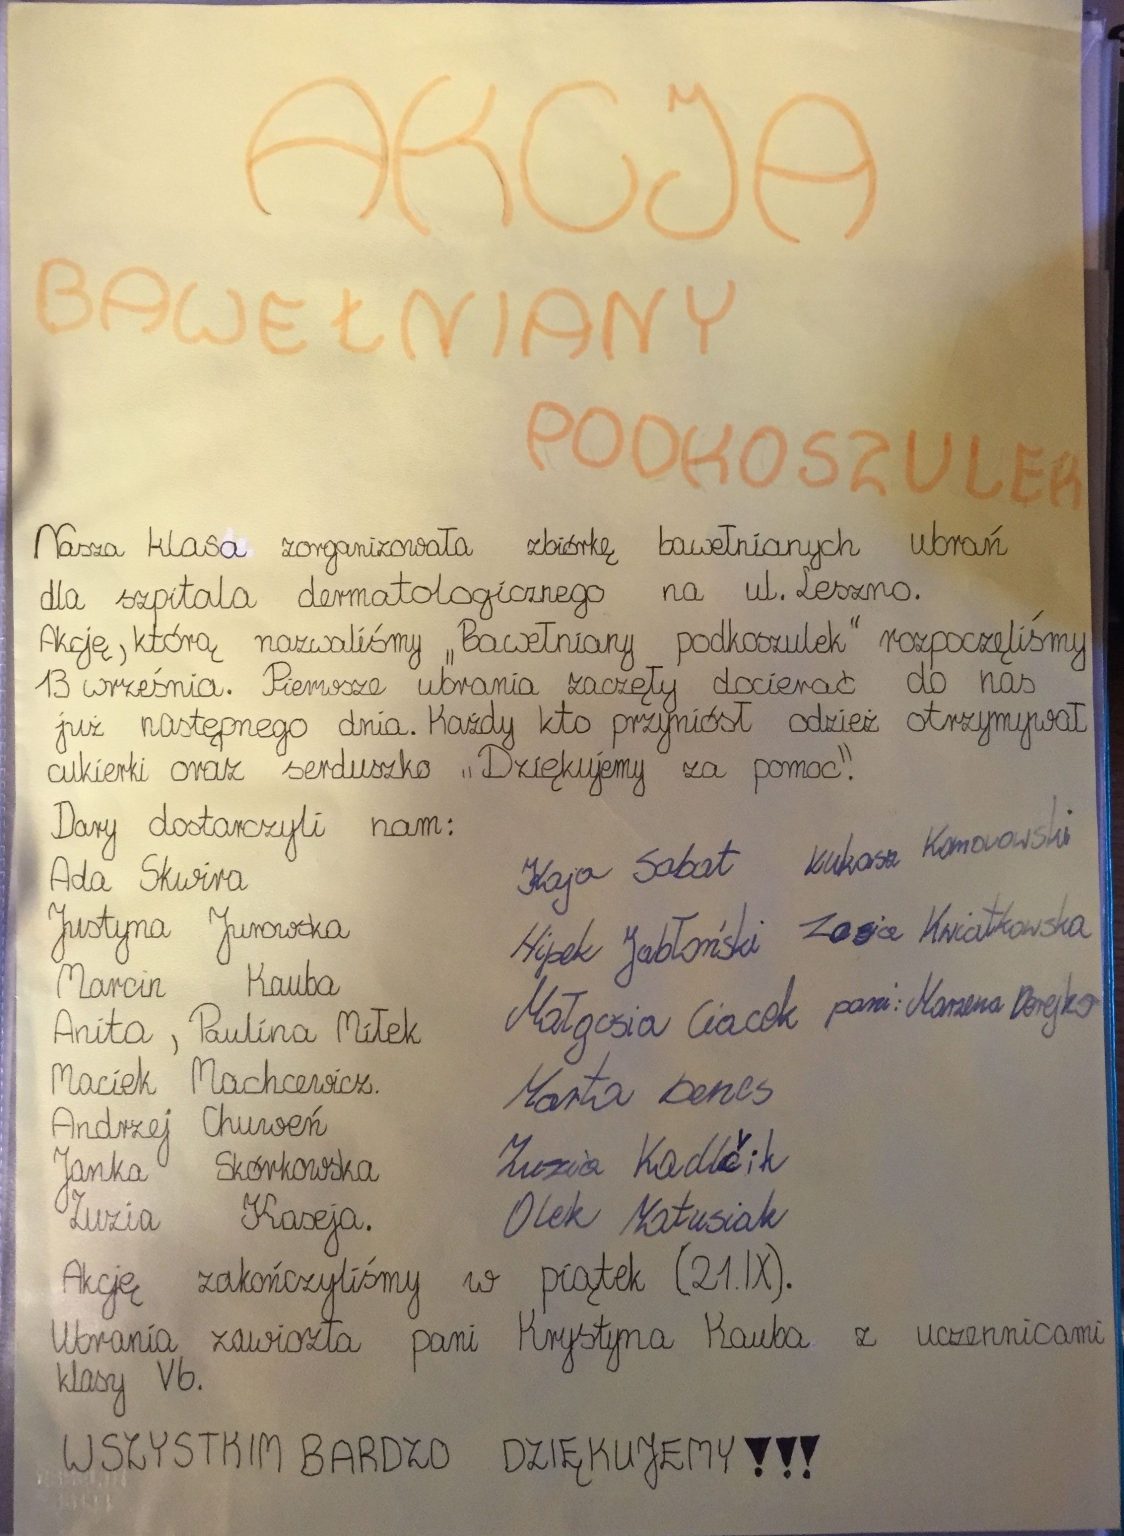 AKCJA
BAWEŁNIANY
PODKOSZULEK
Nasza klasa zorganizowała zbiórkę bawełnianych ubrań
dla szpitala dermatologicznego na ul. Leszno.
Akcję, którą nazwaliśmy „Bawełniany podkoszulek" rozpoczęliśmy
13 września. Pierwsze ubrania zaczęły docierać do nas
już następnego dnia. Każdy kto przyniósł odzież otrzymywał
cukierki oraz serduszko „Dziękujemy za pomoc".
Dary dostarczyli nam:
Ada Skwira
Justyna Jurowska
Marcin Kauba
Anita, Paulina Miłek
Maciek Machcewicz.
Andrzej Chuweń
Janka Skórkowska
Zuzia Kaseja.
Kaja Sabat
Hipek Jabłoński
Małgosia Ciacek
Marta
Zuzia Kadlčik
Olek Matusiak
Łukasz Komorowski
Zosia Kwiatkowska
pani: Marzena Derejko
Akcję zakończyliśmy w piątek (21.IX).
Ubrania zawiozła pani Krystyna Kauba z uczennicami
klasy Vb.
WSZYSTKIM BARDZO DZIĘKUJEMY!!!